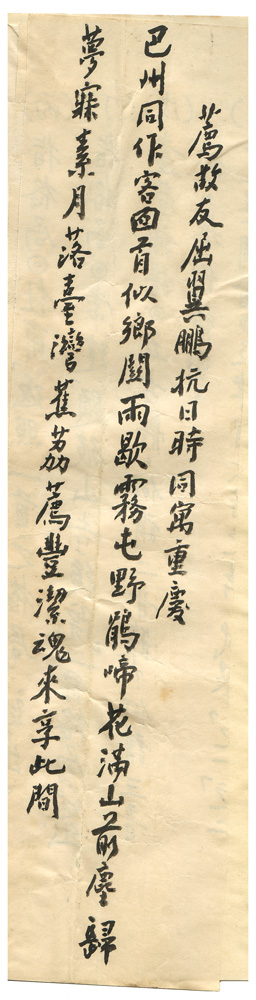 薦故友屈翼鵬抗日時同寓重慶
巴州同作客回首似鄉關雨歇霧屯野鵑啼花滿山前塵歸
夢寐素月落臺灣蕉荔薦豐潔魂來享此間